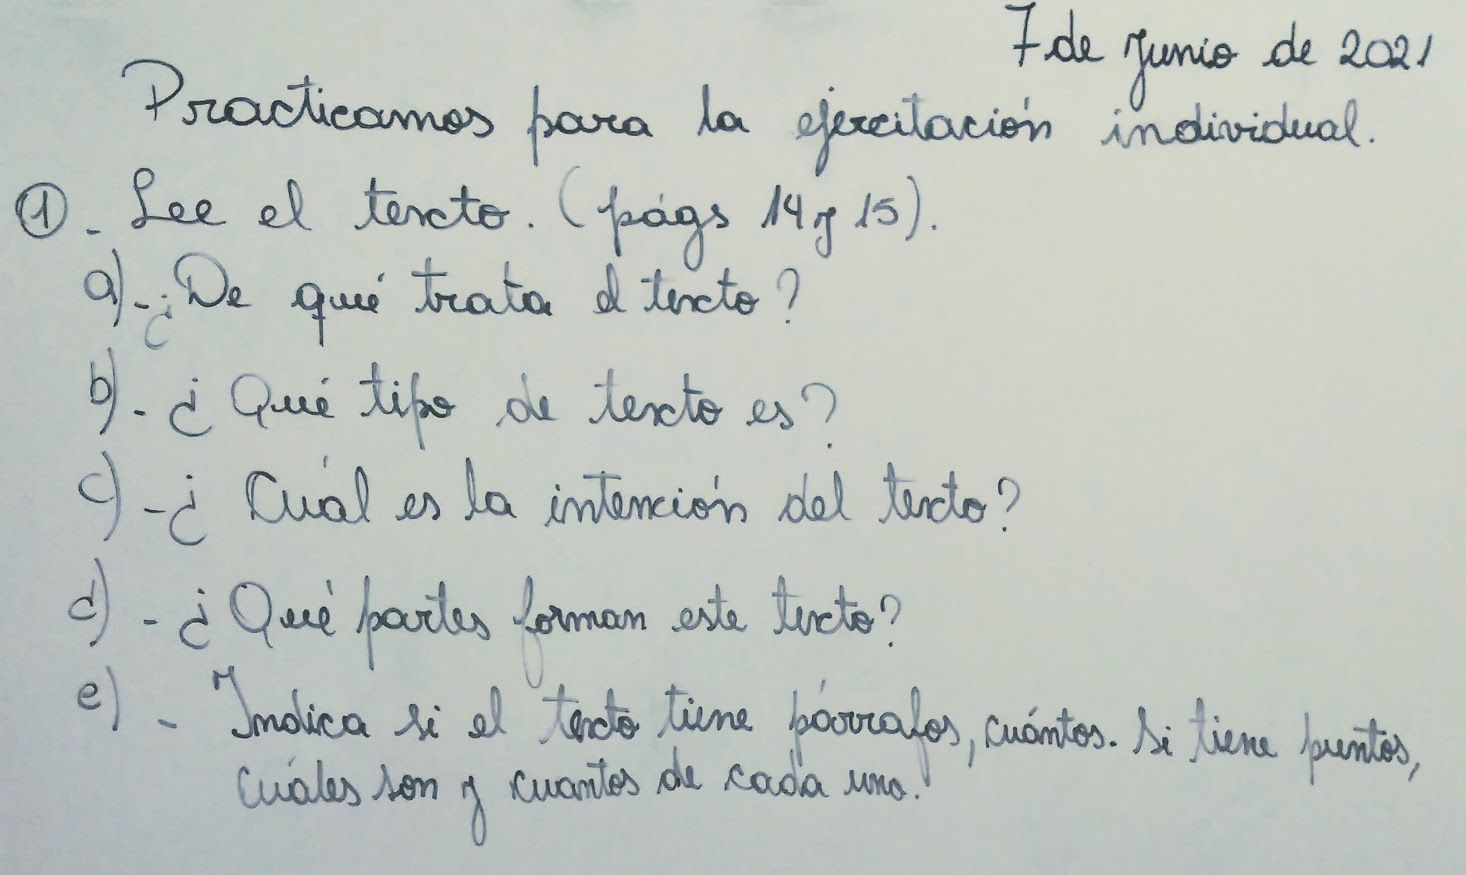 7 de Junio de 2021
Practicamos para la ejercitación individual.
1. Lee el texto. (págs 14 y 15).
a)-¿De qué trata el texto?
b)-¿Qué tipo de texto es?
c)-¿Cuál es la intención del texto?
d)-¿Qué partes forman este texto?
e)- Indica si el texto tiene párrafos, cuántos. Si tiene puntos,
cuáles son y cuantos de cada uno.